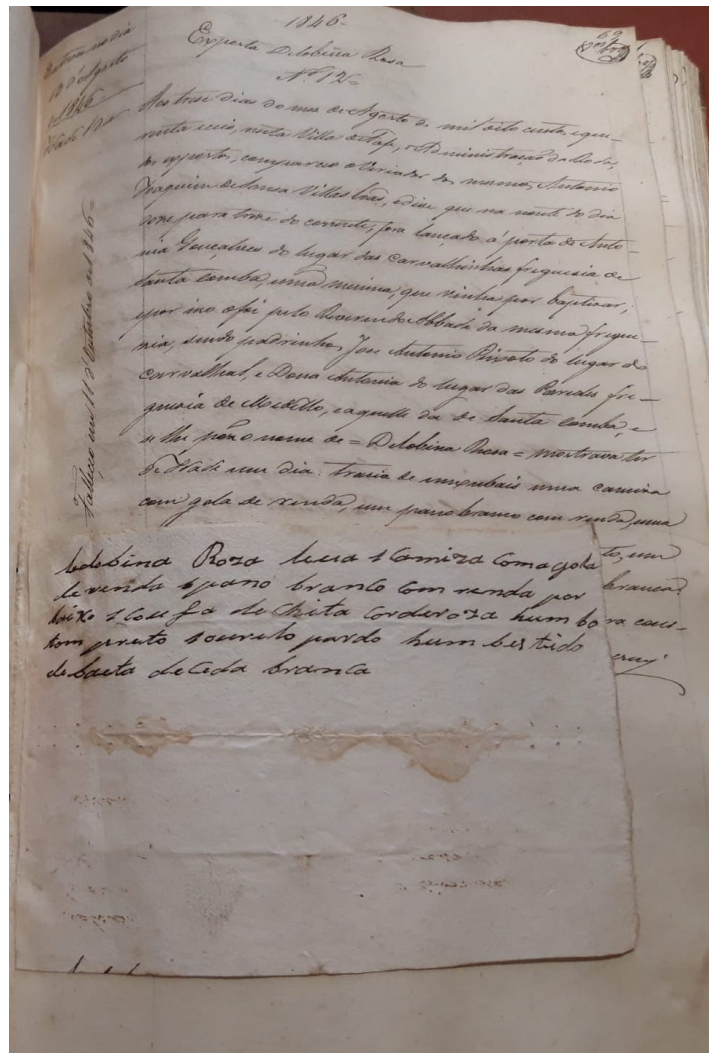 1846-
Exposta Delobina Rosa
Nº 12=
Entrou no dia
13 d'Agosto
1846
69
Aos treze dias do mez de Agosto de mil oito centos e qua-
renta e seis, nesta Villa de Fafe, e Administração da Roda,
dos expostos, compareceo o Veriador dos mesmos, Antonio
Joaquim de Souza Villas boas, e disse que na noute do dia
doze para treze do corrente, fora lançado á porta de Anto-
nia Gonçalves do lugar das Carvalhinhas freguesia de
Santa Comba, uma menina, que vinha por baptizar;
e por isso o foi pelo Reverendo Abbade da mesma fregue-
sia, sendo padrinhos, Jose Antonio do lugar do
Carvalhal, e Dona Antonia do lugar das Paredes fre-
guesia de e aquelle da de Santa Comba, e
se lhe pôz o nome de = Delobina Rosa = mostrava ter
de idade um dia: trazia de enxubais uma camiza
com gola de renda, um pano branco com renda, uma
to, um
branca
ra cons-
Falleceo em 11 d'Outubro de 1846=
Ledobina Roza leva 1 Comiza com a gola
de renda 1 pano branco com renda por
bixo 1 Coufa de Chita Corderoza hum bo
tom preto 1 coureto pardo hum bestido
de baeta de ceda branca